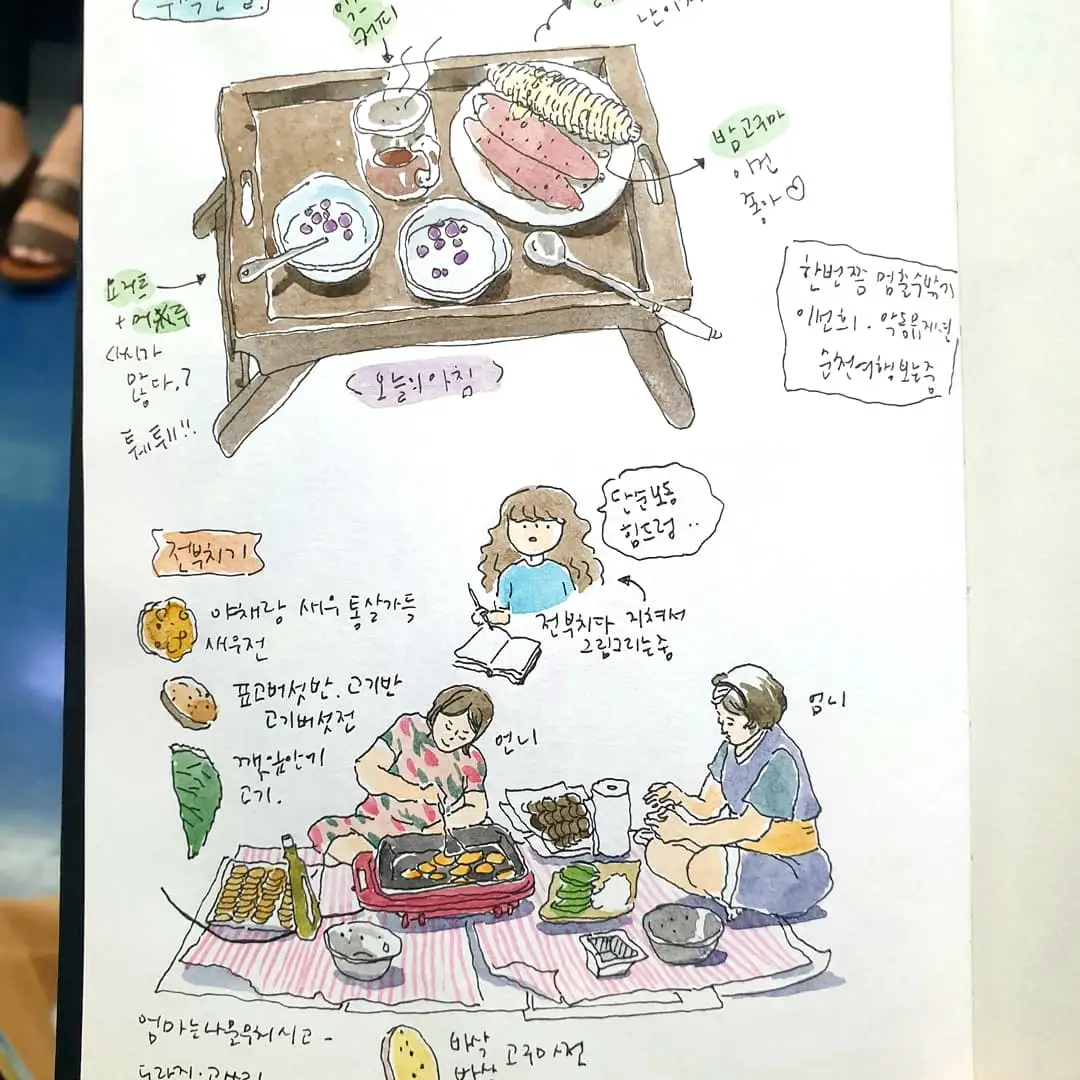 커피
밤고구마
이건
좋아♡
요거트
+ 머쉬루
<씨가
많다.>
퉤퉤!!
<오늘의 아침>
한번쯤 멈출수밖에
이선희 . 악동뮤지션
순천여행 보는중
단순노동
힘드렁 ..
전부치기
전부치다 지쳐서
그림그리는중
야채랑 새우 통살가득
새우전
표고버섯반. 고기반
고기버섯전
깻잎안에
고기.
언니
엄니
엄마는 나물무치시고 -
도라지 . 고사리
바삭
바삭
고구마전